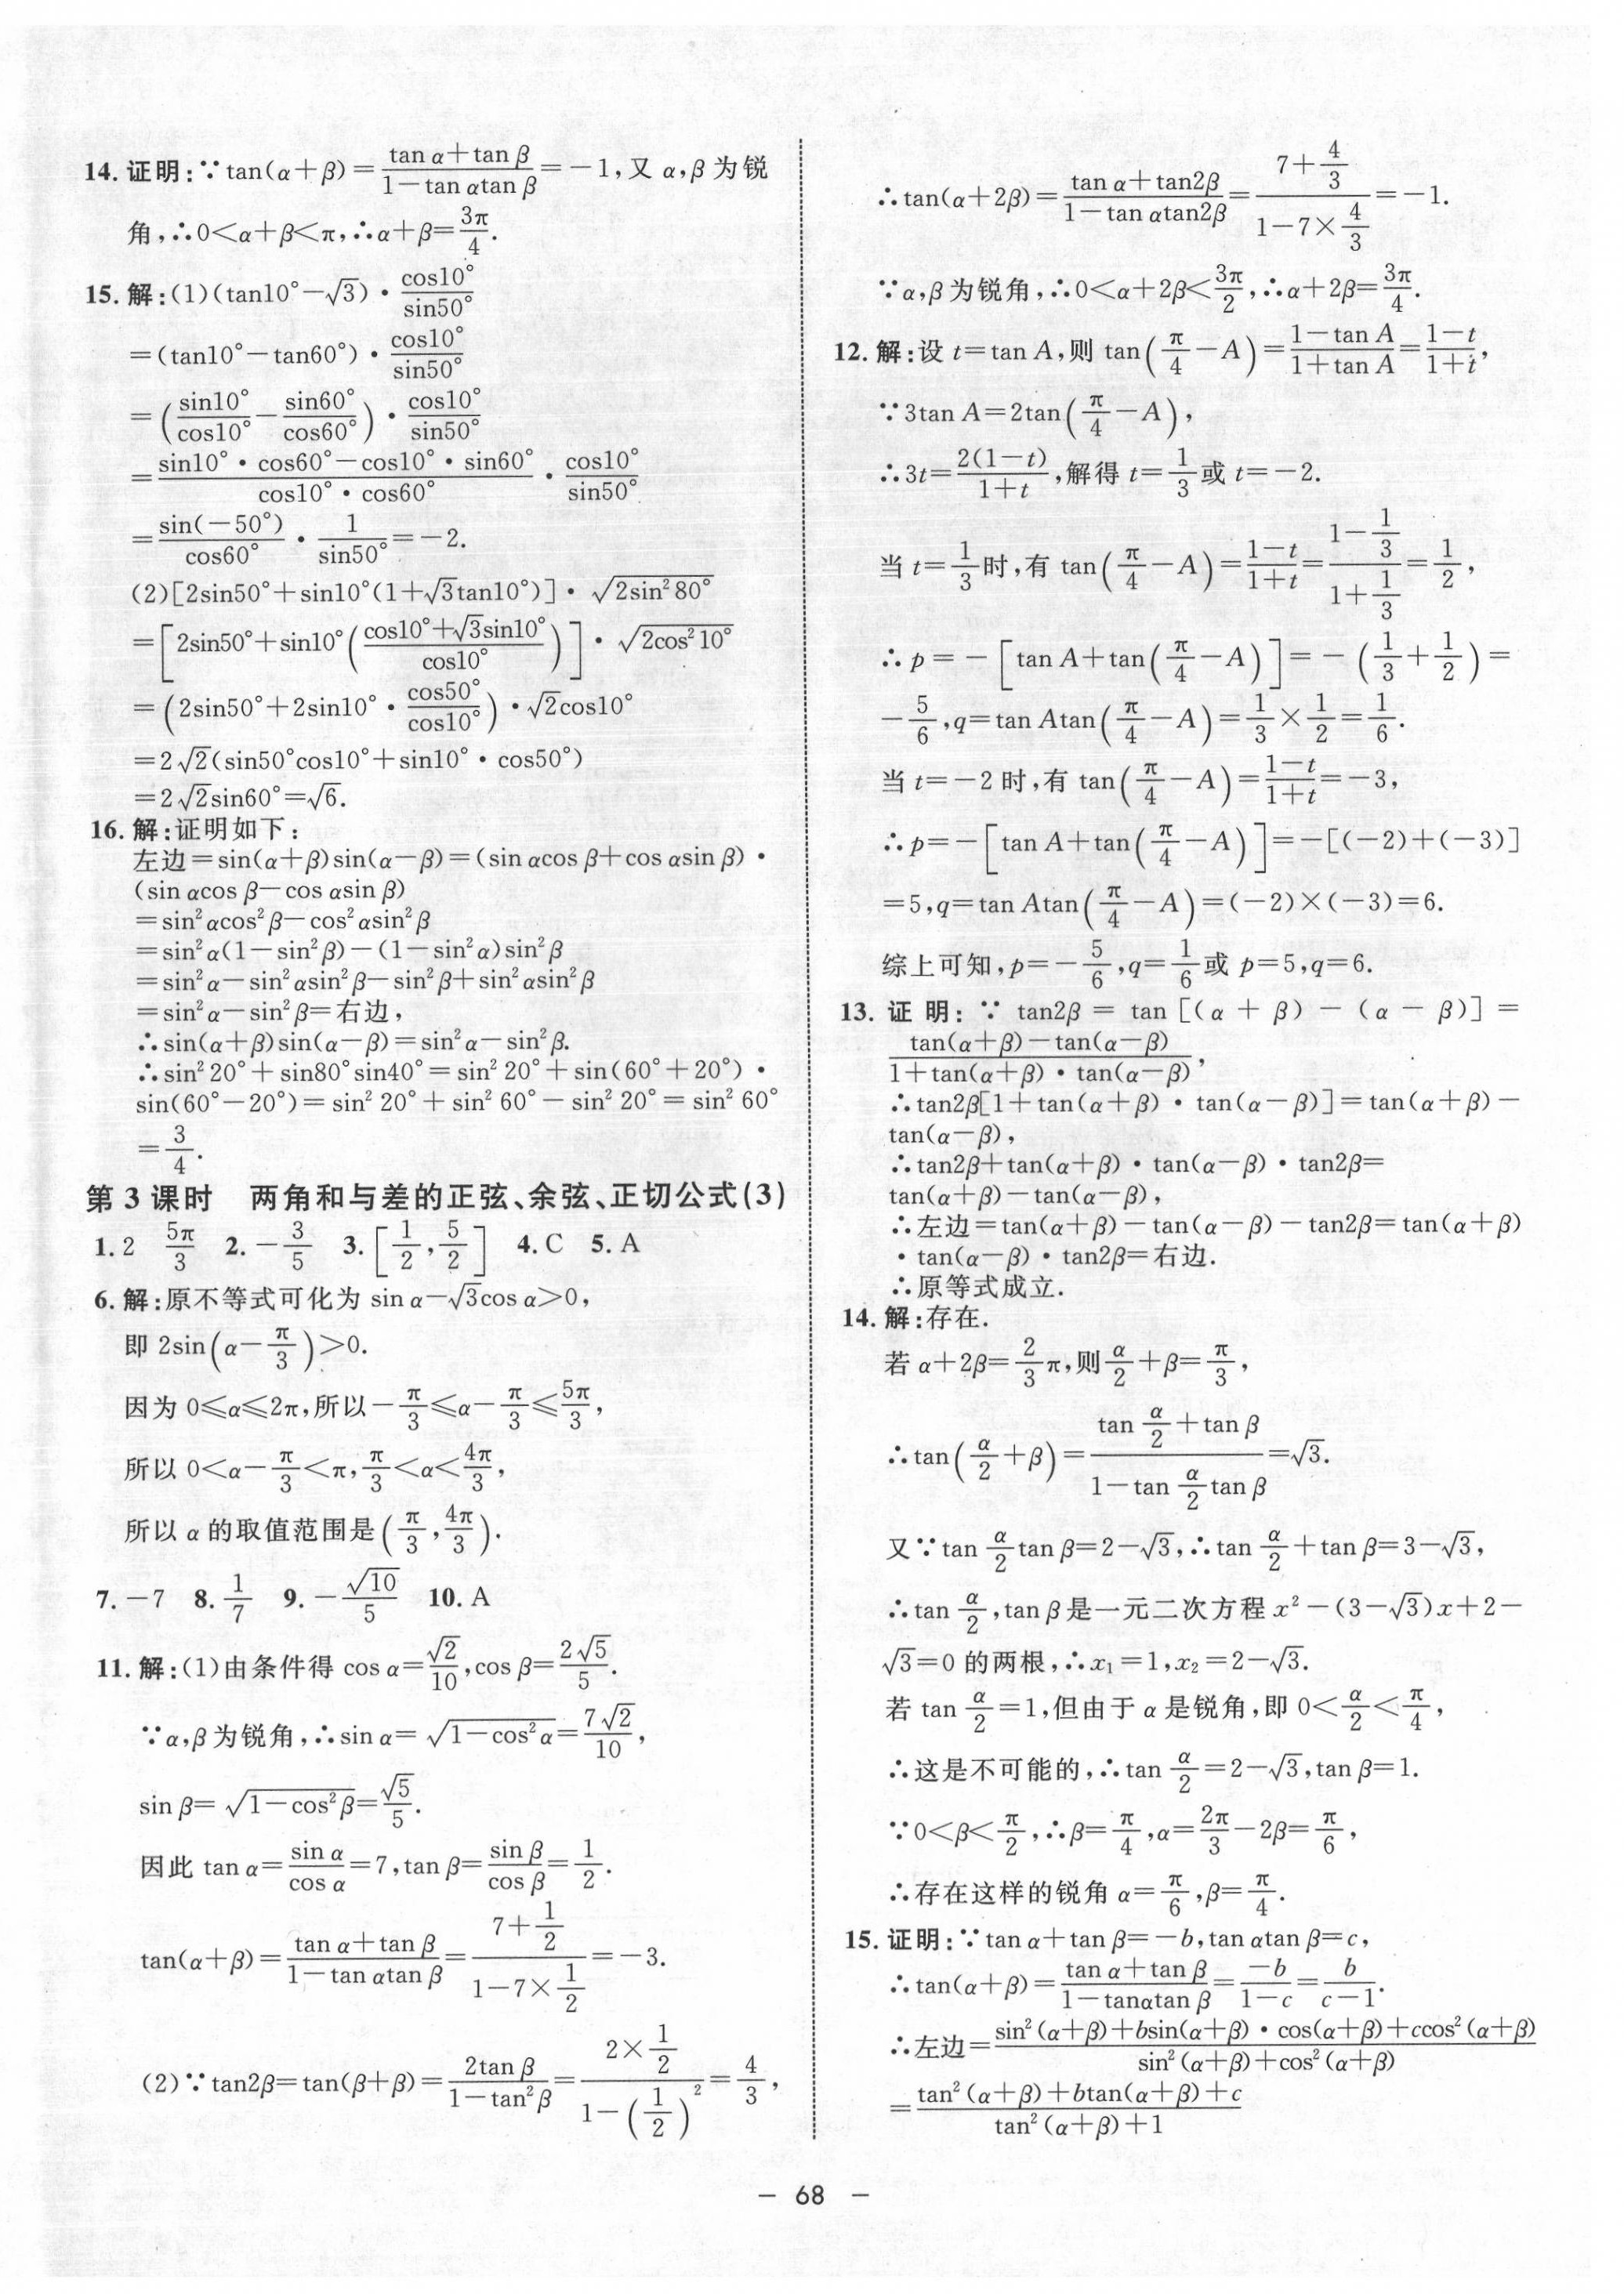 14. 证明:∵tan(α+β)=(tan α+tan β)/(1-tan αtan β)=-1,又 α,β 为锐
角,∴0<α+β<π,∴α+β=3π/4.
15. 解:(1)(tan10°-√3)·cos10°/sin50°
=(tan10°-tan60°)·cos10°/sin50°
=(sin10°/cos10°-sin60°/cos60°)·cos10°/sin50°
=(sin10°·cos60°-cos10°·sin60°)/(cos10°·cos60°)·cos10°/sin50°
=sin(-50°)/cos60°·1/sin50°=-2.
(2)[2sin50°+sin10°(1+√3tan10°)]·√(2sin²80°)
=[2sin50°+sin10°((cos10°+√3sin10°)/cos10°)]·√(2cos²10°)
=(2sin50°+2sin10°·cos50°/cos10°)·√2cos10°
=2√2(sin50°cos10°+sin10°·cos50°)
=2√2sin60°=√6.
16. 解:证明如下:
左边=sin(α+β)sin(α-β)=(sin αcos β+cos αsin β)·
(sin αcos β-cos αsin β)
=sin²αcos²β-cos²αsin²β
=sin²α(1-sin²β)-(1-sin²α)sin²β
=sin²α-sin²αsin²β-sin²β+sin²αsin²β
=sin²α-sin²β=右边,
∴sin(α+β)sin(α-β)=sin²α-sin²β.
∴sin²20°+sin80°sin40°=sin²20°+sin(60°+20°)·
sin(60°-20°)=sin²20°+sin²60°-sin²20°=sin²60°
=3/4.
第 3 课时 两角和与差的正弦、余弦、正切公式(3)
1. 2 5π/3 2. -3/5 3. [1/2,5/2] 4. C 5. A
6. 解:原不等式可化为 sin α-√3cos α>0,
即 2sin(α-π/3)>0.
因为 0≤α≤2π,所以-π/3≤α-π/3≤5π/3,
所以 0<α-π/3<π,π/3<α<4π/3,
所以 α 的取值范围是(π/3,4π/3).
7. -7 8. 1/7 9. -√10/5 10. A
11. 解:(1)由条件得 cos α=√2/10,cos β=2√5/5.
∵α,β为锐角,∴sin α=√(1-cos²α)=7√2/10,
sin β=√(1-cos²β)=√5/5.
因此 tan α=sin α/cos α=7,tan β=sin β/cos β=1/2.
tan(α+β)=(tan α+tan β)/(1-tan αtan β)=(7+1/2)/(1-7×1/2)=-3.
(2)∵tan2β=tan(β+β)=2tan β/(1-tan²β)=(2×1/2)/(1-(1/2)²)=4/3,
∴tan(α+2β)=(tan α+tan2β)/(1-tan αtan2β)=(7+4/3)/(1-7×4/3)=-1.
∵α,β为锐角,∴0<α+2β<3π/2,∴α+2β=3π/4.
12. 解:设 t=tan A,则 tan(π/4-A)=(1-tan A)/(1+tan A)=(1-t)/(1+t),
∵3tan A=2tan(π/4-A),
∴3t=2(1-t)/(1+t),解得 t=1/3或 t=-2.
当 t=1/3时,有 tan(π/4-A)=(1-t)/(1+t)=(1-1/3)/(1+1/3)=1/2,
∴p=-[tan A+tan(π/4-A)]=-(1/3+1/2)=
-5/6,q=tan Atan(π/4-A)=1/3×1/2=1/6.
当 t=-2 时,有 tan(π/4-A)=(1-t)/(1+t)=-3,
∴p=-[tan A+tan(π/4-A)]=-[(-2)+(-3)]
=5,q=tan Atan(π/4-A)=(-2)×(-3)=6.
综上可知,p=-5/6,q=1/6或 p=5,q=6.
13. 证明:∵ tan2β = tan [(α + β) - (α - β)] =
(tan(α+β)-tan(α-β))/(1+tan(α+β)·tan(α-β)),
∴tan2β[1+tan(α+β)·tan(α-β)]=tan(α+β)-
tan(α-β),
∴tan2β+tan(α+β)·tan(α-β)·tan2β=
tan(α+β)-tan(α-β),
∴左边=tan(α+β)-tan(α-β)-tan2β=tan(α+β)
·tan(α-β)·tan2β=右边.
∴原等式成立.
14. 解:存在.
若 α+2β=2/3π,则α/2+β=π/3,
∴tan(α/2+β)=(tan α/2+tan β)/(1-tan α/2tan β)=√3.
又∵tan α/2tan β=2-√3,∴tan α/2+tan β=3-√3,
∴tan α/2,tan β是一元二次方程 x²-(3-√3)x+2-
√3=0 的两根,∴x₁=1,x₂=2-√3.
若 tan α/2=1,但由于 α 是锐角,即 0<α/2<π/4,
∴这是不可能的,∴tan α/2=2-√3,tan β=1.
∵0<β<π/2,∴β=π/4,α=2π/3-2β=π/6,
∴存在这样的锐角 α=π/6,β=π/4.
15. 证明:∵tan α+tan β=-b,tan αtan β=c,
∴tan(α+β)=(tan α+tan β)/(1-tanαtan β)=-b/(1-c)=b/(c-1).
∴左边=(sin²(α+β)+bsin(α+β)·cos(α+β)+ccos²(α+β))/(sin²(α+β)+cos²(α+β))
=(tan²(α+β)+btan(α+β)+c)/(tan²(α+β)+1)
- 68 -